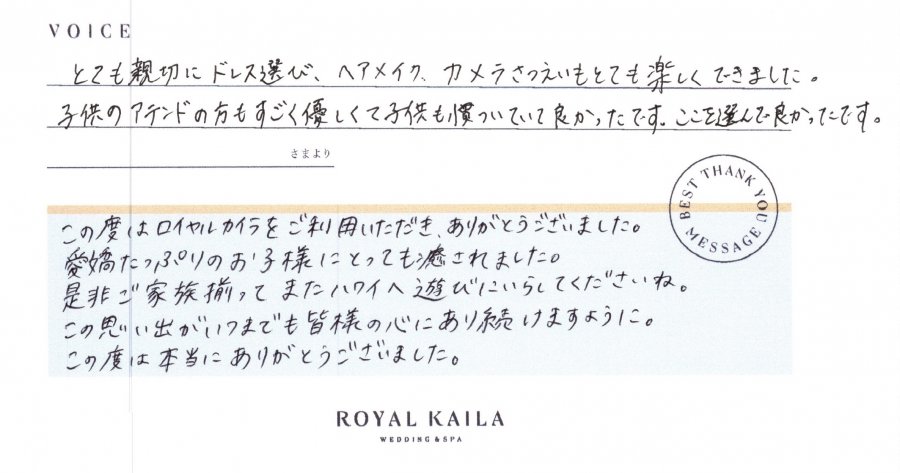 VOICE
とても親切にドレス選び、ヘアメイク、カメラさつえいもとても楽しくできました。
子供のアテンドの方もすごく優しくて子供も慣ついていて良かったです。ここを選んで良かったです。
さまより
BEST THANK YOU MESSAGE
この度はロイヤルカイラをご利用いただき、ありがとうございました。
愛嬌たっぷりのお子様にとっても癒されました。
是非ご家族揃ってまたハワイへ遊びにいらしてくださいね。
この思い出がいつまでも皆様の心にあり続けますように。
この度は本当にありがとうございました。
ROYAL KAILA
WEDDING & SPA